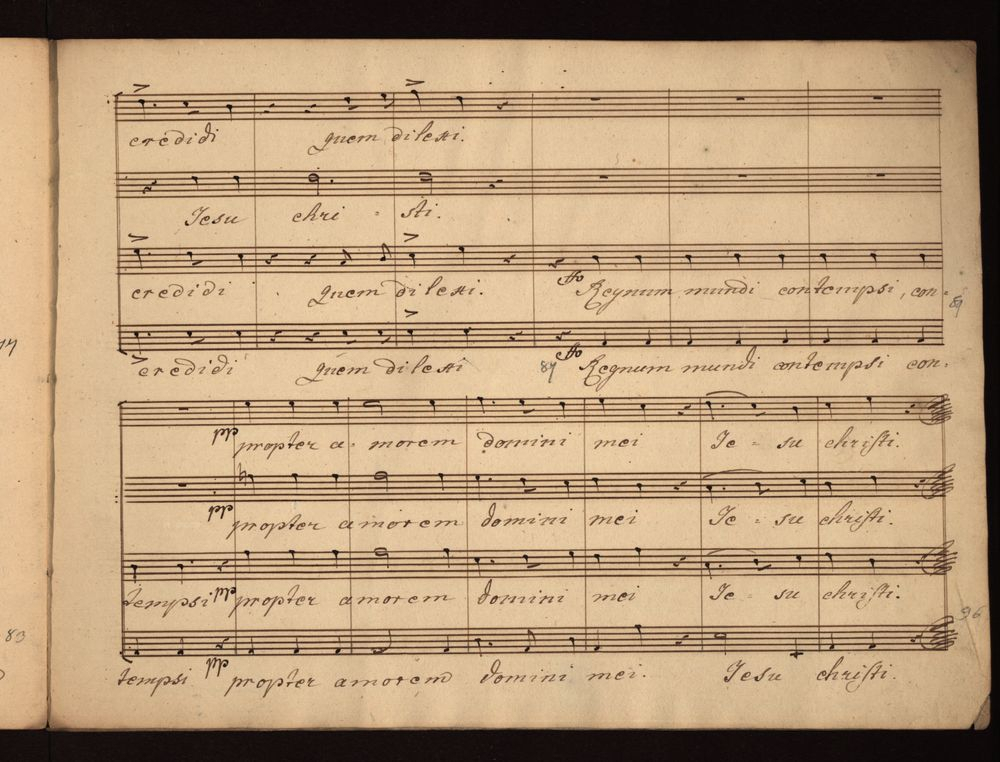 credidi quem dilexi.
Jesu chri - sti.
credidi quem dilexi. Regnum mundi contempsi, con-
credidi quem dilexi Regnum mundi contempsi con-
propter a- morem domini mei Je - su christi.
propter amorem domini mei Je - su christi.
tempsi propter amorem domini mei Je - su christi.
83
96
tempsi propter amorem domini mei. Jesu christi.